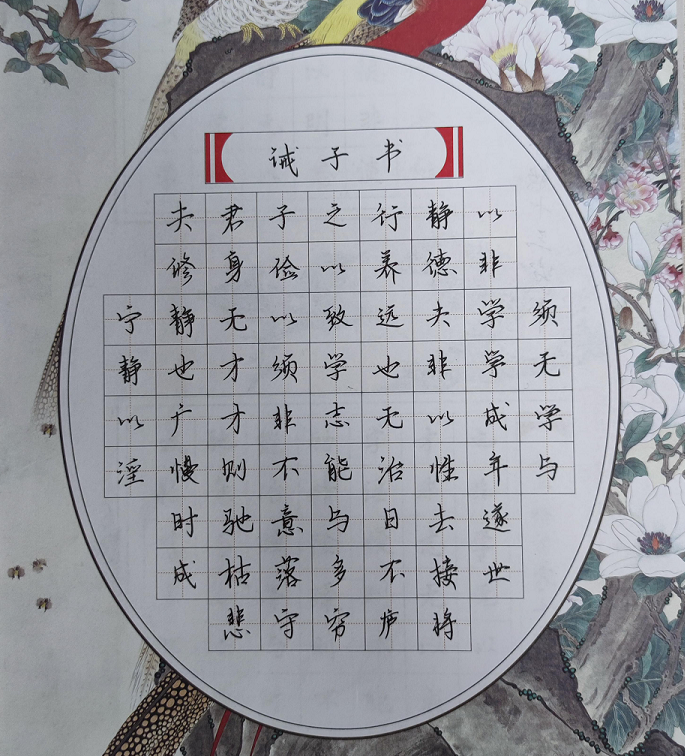 诫子书
夫君子之行静以
修身俭以养德非
宁静无以致远夫学须
静也才须学也非学无
以广才非志无以成学
淫慢则不能治性年与
时驰意与日去遂
成枯落多不接世
悲守穷庐将